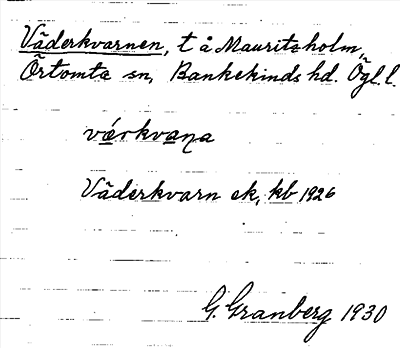 Väderkvarnen, t å Mauritzholm,
Örtomta sn, Bankekinds hd. Ögl.l.
værkvana
Väderkvarn ek, kb 1926
G. Granberg 1930